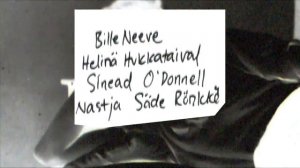 Bille Neeve
Helinä Hukkataival
Sinead O'Donnell
Nastja Säde Rönkkö